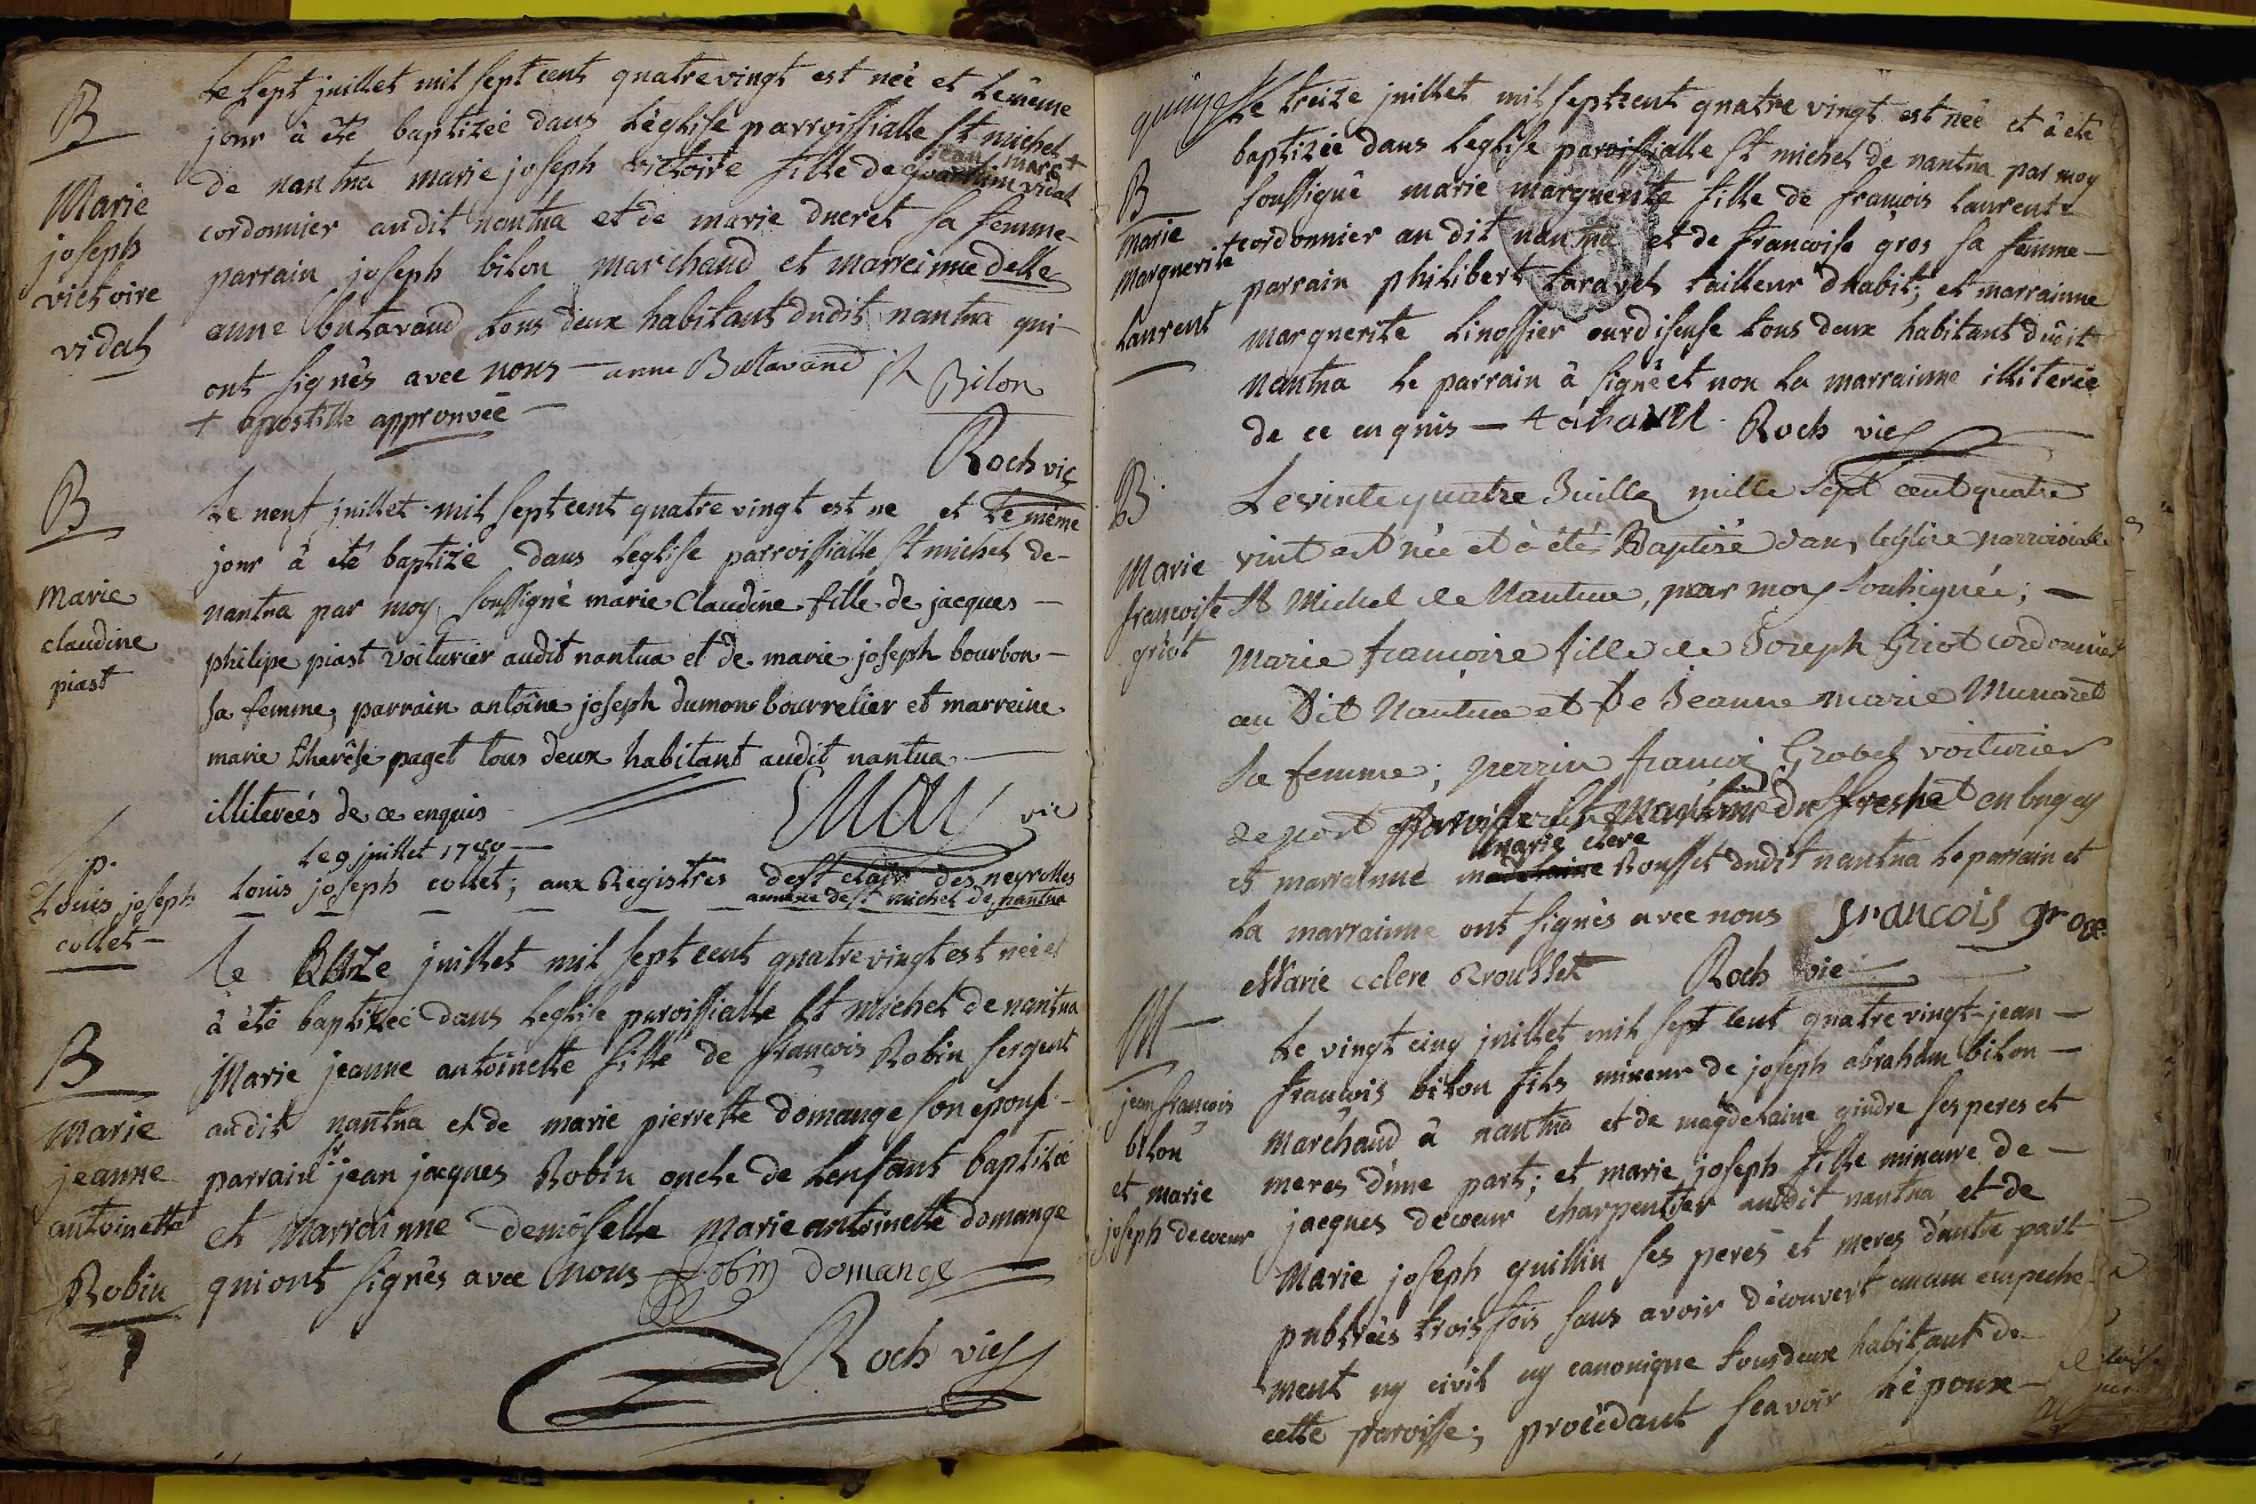 B
Marie
joseph
victoire
vidal
Le sept juillet mil sept cent quatrevingt est neè et le même
jour à eté baptizéé dans l'église parroissialle st michel
de nantua marie joseph victoire fille de jean marc + vidal
cordonnier audit nantua et de marie ducret sa femme
parrain joseph bilon marchand et marreinne delle
anne butavand tous deux habitants dudit nantua qui
ont signés avec nous anne Butavand Bilon
+ apostille approuvée
Roch vic
B
Marie
claudine
piast
Le neuf juillet mil sept cent quatre vingt est ne et le même
jour à eté baptizé dans l'eglise parroissialle st michel de
nantua par moy soussigné marie Claudine fille de jacques
philipe piast voiturier audit nantua et de marie joseph bourbon
sa femme, parrain antoîne joseph dumons bourrelier et marreine
marie therêse paget tous deux habitant audit nantua
illiterées de ce enquis
vic
p.
Louis joseph
collet
Le 9 juillet 1780
Louis joseph collet; aux Registres de st clair des neyrolles
annexe de st michel de nantua
B
Marie
jeanne
antoinette
Robin
le onze juillet mil sept cent quatrevingt est née et
à été baptizeé dans l'eglise paroissialle st michel de nantua
Marie jeanne antoinette fille de françois Robin sergent
audit nantua et de marie pierrette domange son épouse
parrain sr jean jacques Robin oncle de l'enfant baptizée
et Marrainne demoiselle Marie antoinette domange
qui ont signés avec nous Robin domange
Roch vic
quinze
B
marie
marguerite
Laurent
Le treize juillet mil septcent quatre vingt est née et à été
baptizéé dans l'eglise paroissialle st michel de nantua par moy
soussigné marie marguerite fille de françois laurent
+ cordonnier au dit nantua et de francoise gros sa femme
parrain philibert taravel tailleur d'habit; et marrainne
marguerite linossier ourdiseuse tous deux habitant dudit
nantua le parrain à signé et non la marrainne illiterée
de ce enquis Roch vic
B
Marie
francoise
griot
Le vinte quatre Juille mille Sept cent quatre
vint est née et à étés Baptisé dans leglise parroisialle
St Michel de Nantua, par moy souhignée;
Marie françoise fille de Joseph Griot cordonnier
au Dit Nantua et De Jeanne marie Munaret
sa femme; perrin françoi Grobel voiturier
de port en bugey
et marrainne marie clere Rousset dudit nantua le parrain et
la marrainne ont signés avec nous françois groβe
Marie clere Rousset Roch vic
M
jean françois
bilon
et marie
joseph decoeur
Le vingt cinq juillet mil sept cent quatre vingt jean
françois bilon fils mineur de joseph abraham bilon
marchand à nantua et de magdelaine gindre ses peres et
meres d'une part; et marie joseph fille mineure de
jacques decoeur charpentier audit nantua et de
Marie joseph guillin ses peres et meres d'autre part
publiées trois fois sans avoir découvert aucun empeche-
ment ny civil ny canonique tous deux habitant de
cette paroisse; procédant scavoir l'époux